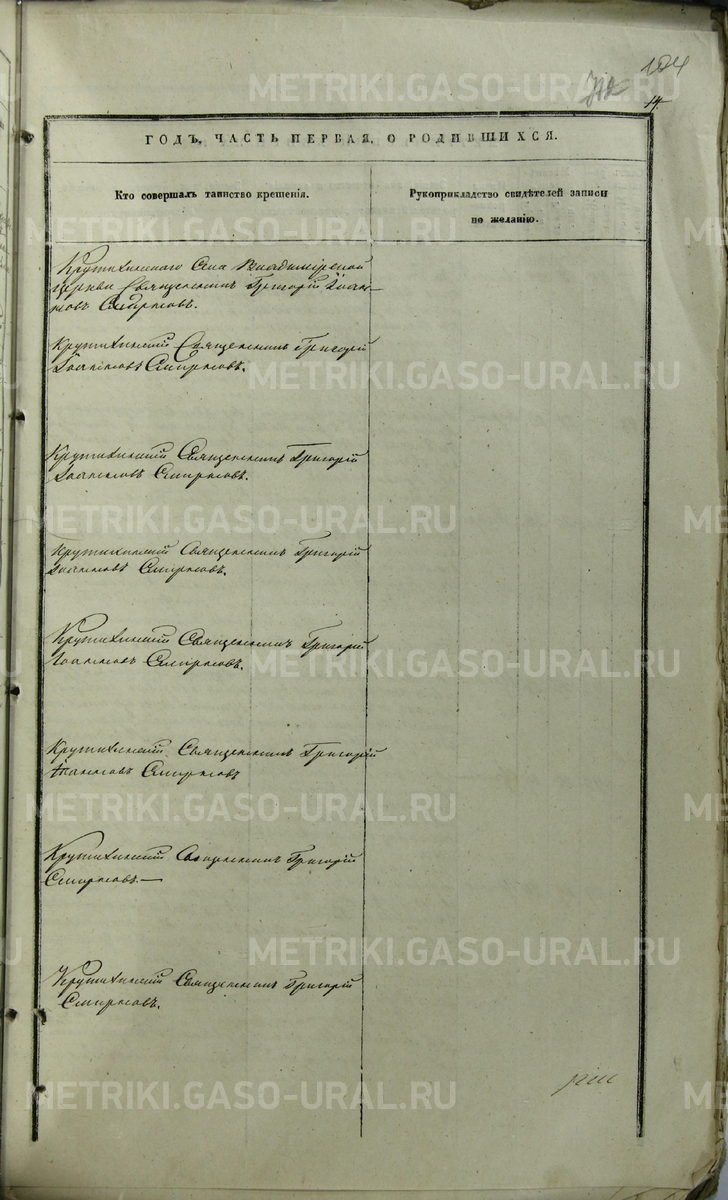 194
14
METRIKI.GASO-URAL.RU
ГОДЪ, ЧАСТЬ ПЕРВАЯ, О РОДИВШИХСЯ.
Кто совершалъ таинство крещенія.
Рукоприкладство свидѣтелей записи
по желанію.
Крутихинскаго Села Владимірской
церкви Священникъ Григорій Іоан-
новъ Смирновъ.
Крутихинскій Священникъ Григорій
Іоанновъ Смирновъ.
METRIKI.GASO-URAL.RU
Крутихинскій Священникъ Григорій
Іоанновъ Смирновъ.
METRIKI.GASO-URAL.RU
Крутихинскій Священникъ Григорій
Іоанновъ Смирновъ.
Крутихинскій Священникъ Григорій
Іоанновъ Смирновъ.
METRIKI.GASO-URAL.RU
Крутихинскій Священникъ Григорій
Іоанновъ Смирновъ
METRIKI.GASO-URAL.RU
Крутихинскій Священникъ Григорій
Смирновъ.—
METRIKI.GASO-URAL.RU
Крутихинскій Священникъ Григорій
Смирновъ.
METRIKI.GASO-URAL.RU